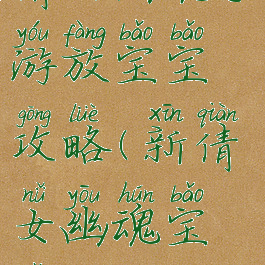 yóu fàng bǎo bǎo
游放宝宝
gōng lüè xīn qiàn
攻略(新倩
nǚ yōu hún bǎo
女幽魂宝